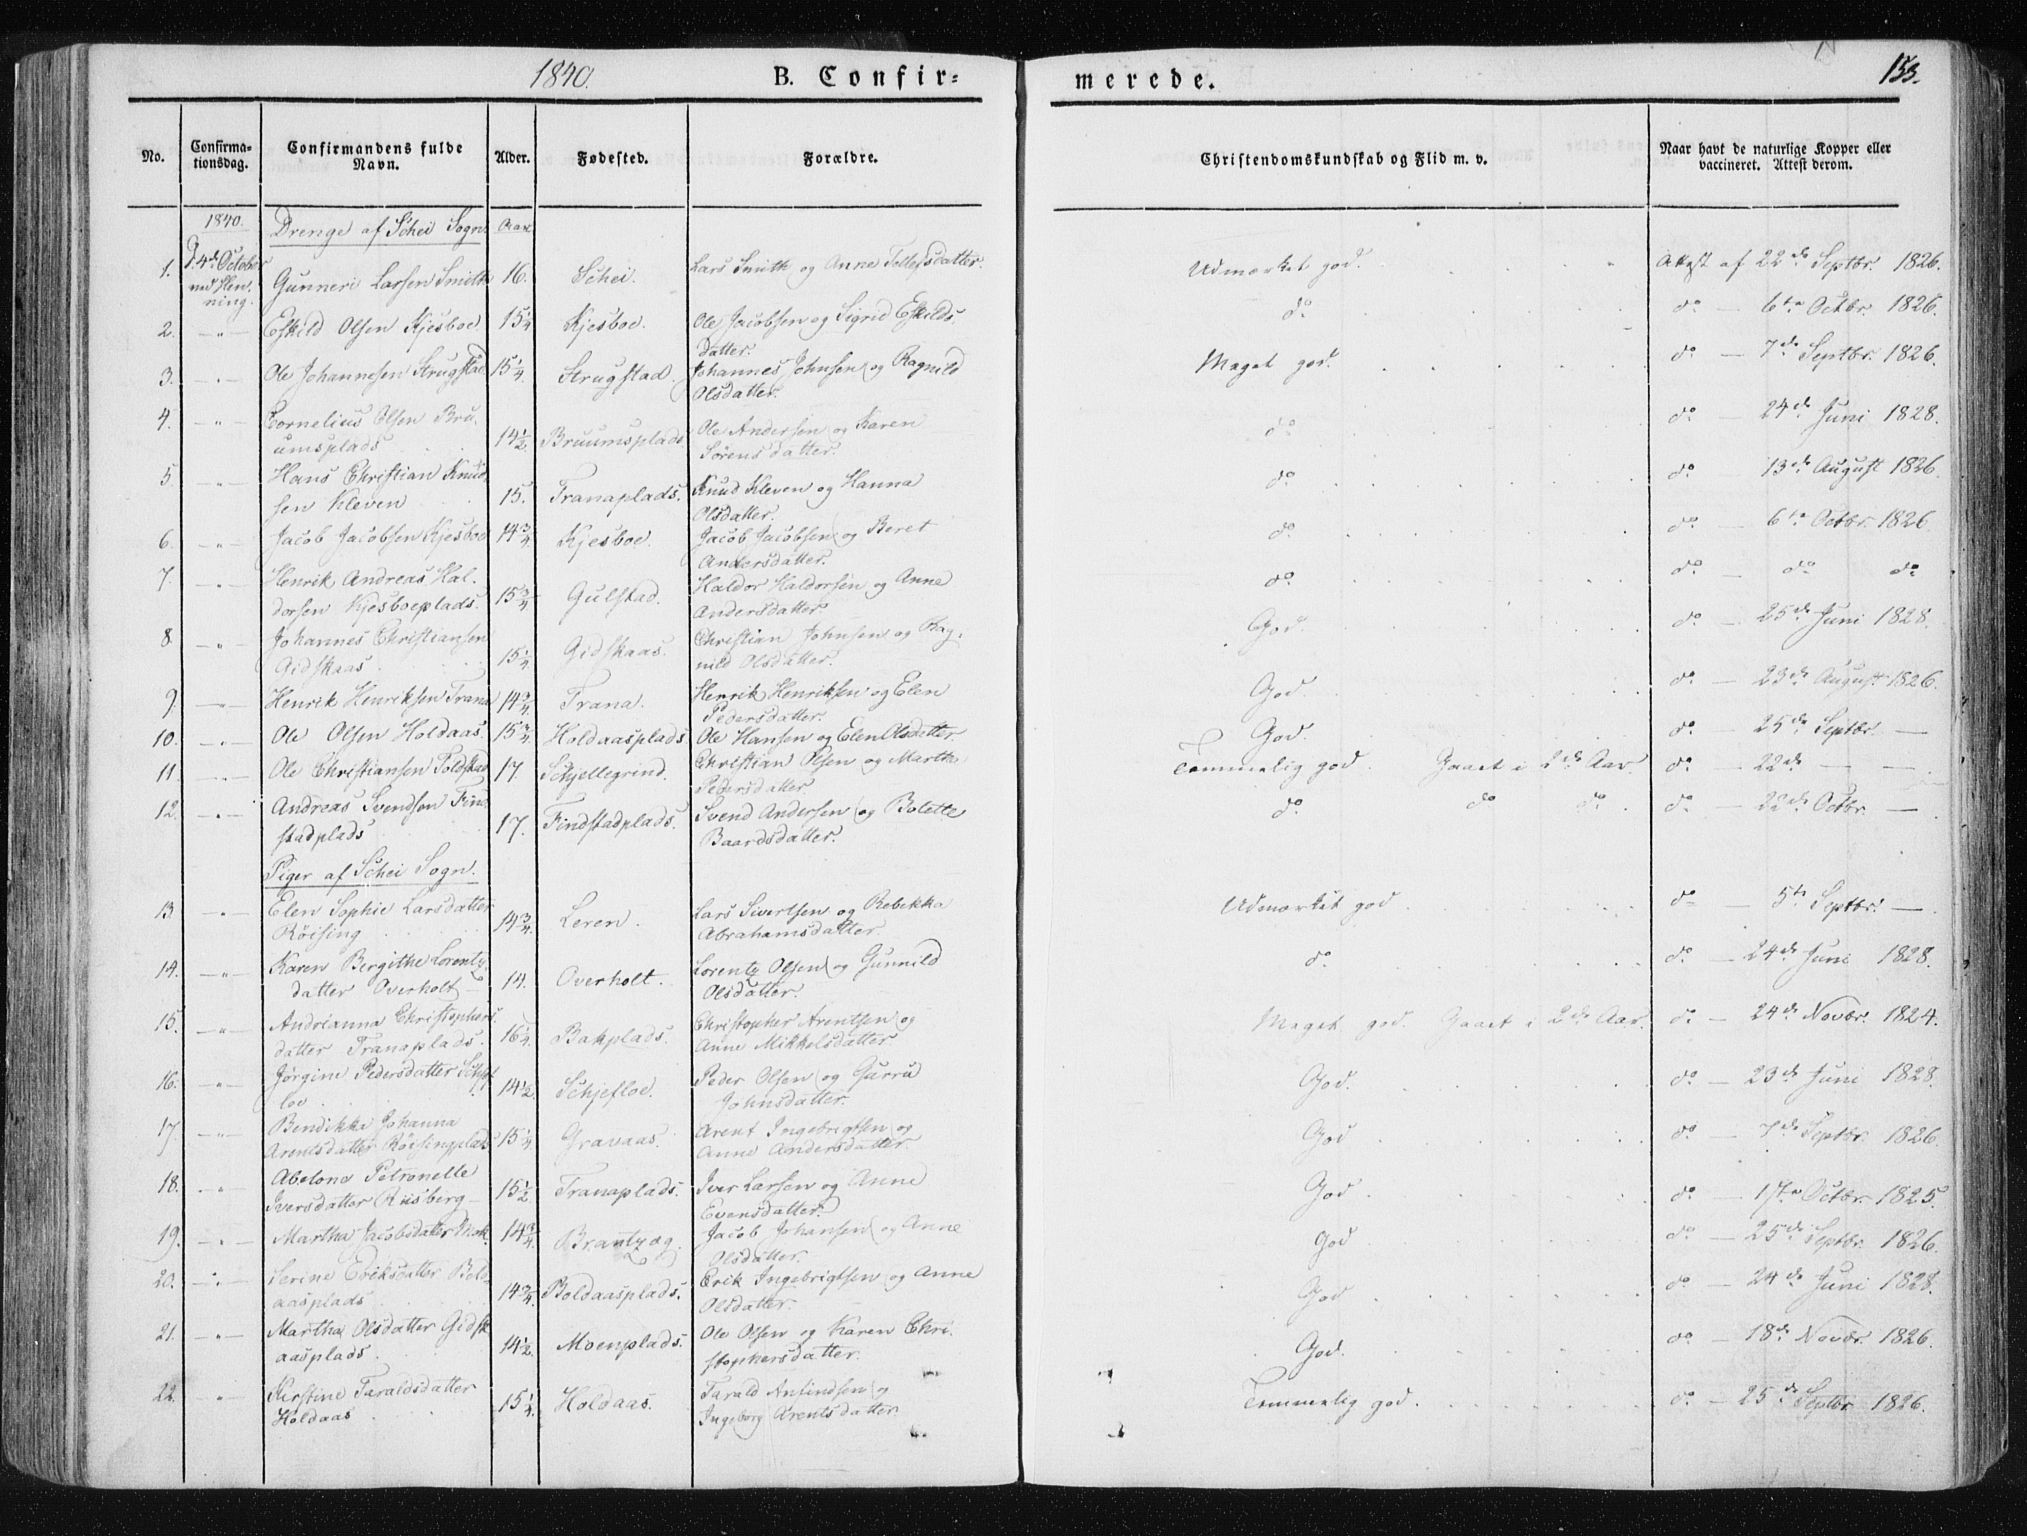 1840.
B. Confir=
merede.
153.
No.
Confirma-
tionsdag.
Confirmandens fulde
Navn.
Alder.
Fødested.
Forældre.
Christendomskundskab og Flid m. v.
Naar havt de naturlige Kopper eller
vaccineret. Attest derom.
1840.
Drenge af Schei Sogn
Aar
1. d. 4de October Gunneri Larsen Smith 16. Schei. Lars Smith og Anne Tollefsdatter. Udmærket god. Attest af 22de Septbr. 1826.
ved Hen,
ning.
2. -"- Eskild Olsen Kjesboe. 15 1/4. Kjesboe. Ole Jacobsen og Sigrid Eskilds do. do — 6te Octbr. 1826.
datter.
3. -"- Ole Johannesen Strugstad 15 1/4. Strugstad. Johannes Johnsen og Ragnild Meget god. do — 7de Septbr. 1826.
Olsdatter.
4. -"- Cornelius Olsen Bru- 14 1/2. Bruumsplads Ole Andersen og Karen do. do — 24de Juni 1828.
umsplads Sørensdatter.
5 -"- Hans Christian Knud 15. Tranaplads. Knud Kleven og Hanna do. do — 13de August 1826.
sen Kleven Olsdatter.
6. -"- Jacob Jacobsen Kjesboe 14 3/4. Kjesboe. Jacob Jacobsen og Beret do. do — 6te Octbr. 1826.
Andersdatter.
7. -"- Henrik Andreas Hal- 15 3/4. Gulstad. Haldor Haldorsen og Anne do. do — do do
dorsen Kjesboeplads. Andersdatter.
8 -"- Johannes Christiansen 15 1/4. Gidskaas. Christian Johnsen og Rag- God. do — 25de Juni 1828.
Gidskaas nild Olsdatter.
9. -"- Henrik Henriksen Trana 14 3/4. Trana. Henrik Henriksen og Elen God. do — 23de August 1826.
Pedersdatter.
10. -"- Ole Olsen Holdaas. 15 3/4. Holdaasplads Ole Hansen og Elen Olsdatter God. do — 25de Septbr. —
11. -"- Ole Christiansen Toldstad 17. Schjellegrind. Christian Olsen og Martha Temmelig god. Gaaet i 2de Aar. do — 22de — —
Pedersdatter
12. -"- Andreas Svendsen Find 17. Findstadplads. Svend Andersen og Bolette do. do do. do — 22de Octbr. —
stadplads Baardsdatter.
Piger af Schei Sogn.
13. -"- Elen Sophie Larsdatter 14 3/4. Leren. Lars Sivertsen og Rebekka Udmærket god do — 5te Septbr. —
Røising Abrahamsdatter
14. -"- Karen Bergithe Lorentz 14. Overholt. Lorentz Olsen og Gunnild do. do — 24de Juni 1828.
datter Overholt Olsdatter.
15. -"- Andrianna Christophers 16 1/4. Bakplads. Christopher Arentsen og Meget god. Gaaet i 2de Aar. do — 24de Novbr. 1824.
datter Tranaplads. Anne Mikkelsdatter
16. -"- Jørgine Pedersdatter Schjef 14 1/2. Schjefloe. Peder Olsen og Gurru God. do — 23de Juni 1828.
loe Johnsdatter.
17 -"- Bendikka Johanna 15 1/4. Gravaas. Arent Ingebrigtsen og God do — 7de Septbr. 1826.
Arentsdatter Røisingplads Anne Andersdatter.
18. -"- Abelone Petronelle 15 1/2. Tranaplads. Iver Larsen og Anne God do — 17te Octbr. 1825.
Iversdatter Riisberg Evensdatter.
19. -"- Martha Jacobsdatter Mok. 14 3/4. Brantzæg. Jacob Johansen og Anne God do — 25de Septbr. 1826.
Olsdatter.
20. -"- Serine Eriksdatter Bold- 14 3/4. Boldaasplads. Erik Ingebrigtsen og Anne God do — 24de Juni 1828.
aasplads Olsdatter.
21. -"- Martha Olsdatter Gidsk 14 1/2. Moenplads. Ole Olsen og Karen Chri- God. do — 18de Novbr. 1826.
aasplads. stophersdatter.
22. -"- Kirstine Taraldsdatter 15 1/4. Holdaas. Tarald Anfindsen og Temmelig god. do — 25de Septbr 1826.
Holdaas Ingeborg Arentsdatter